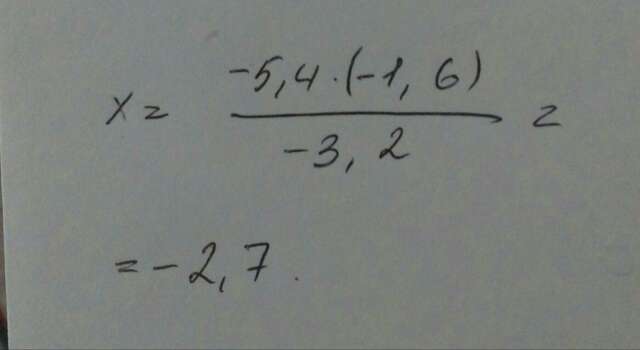 -5,4·(-1, 6)
x = ———— =
-3, 2
= -2,7.